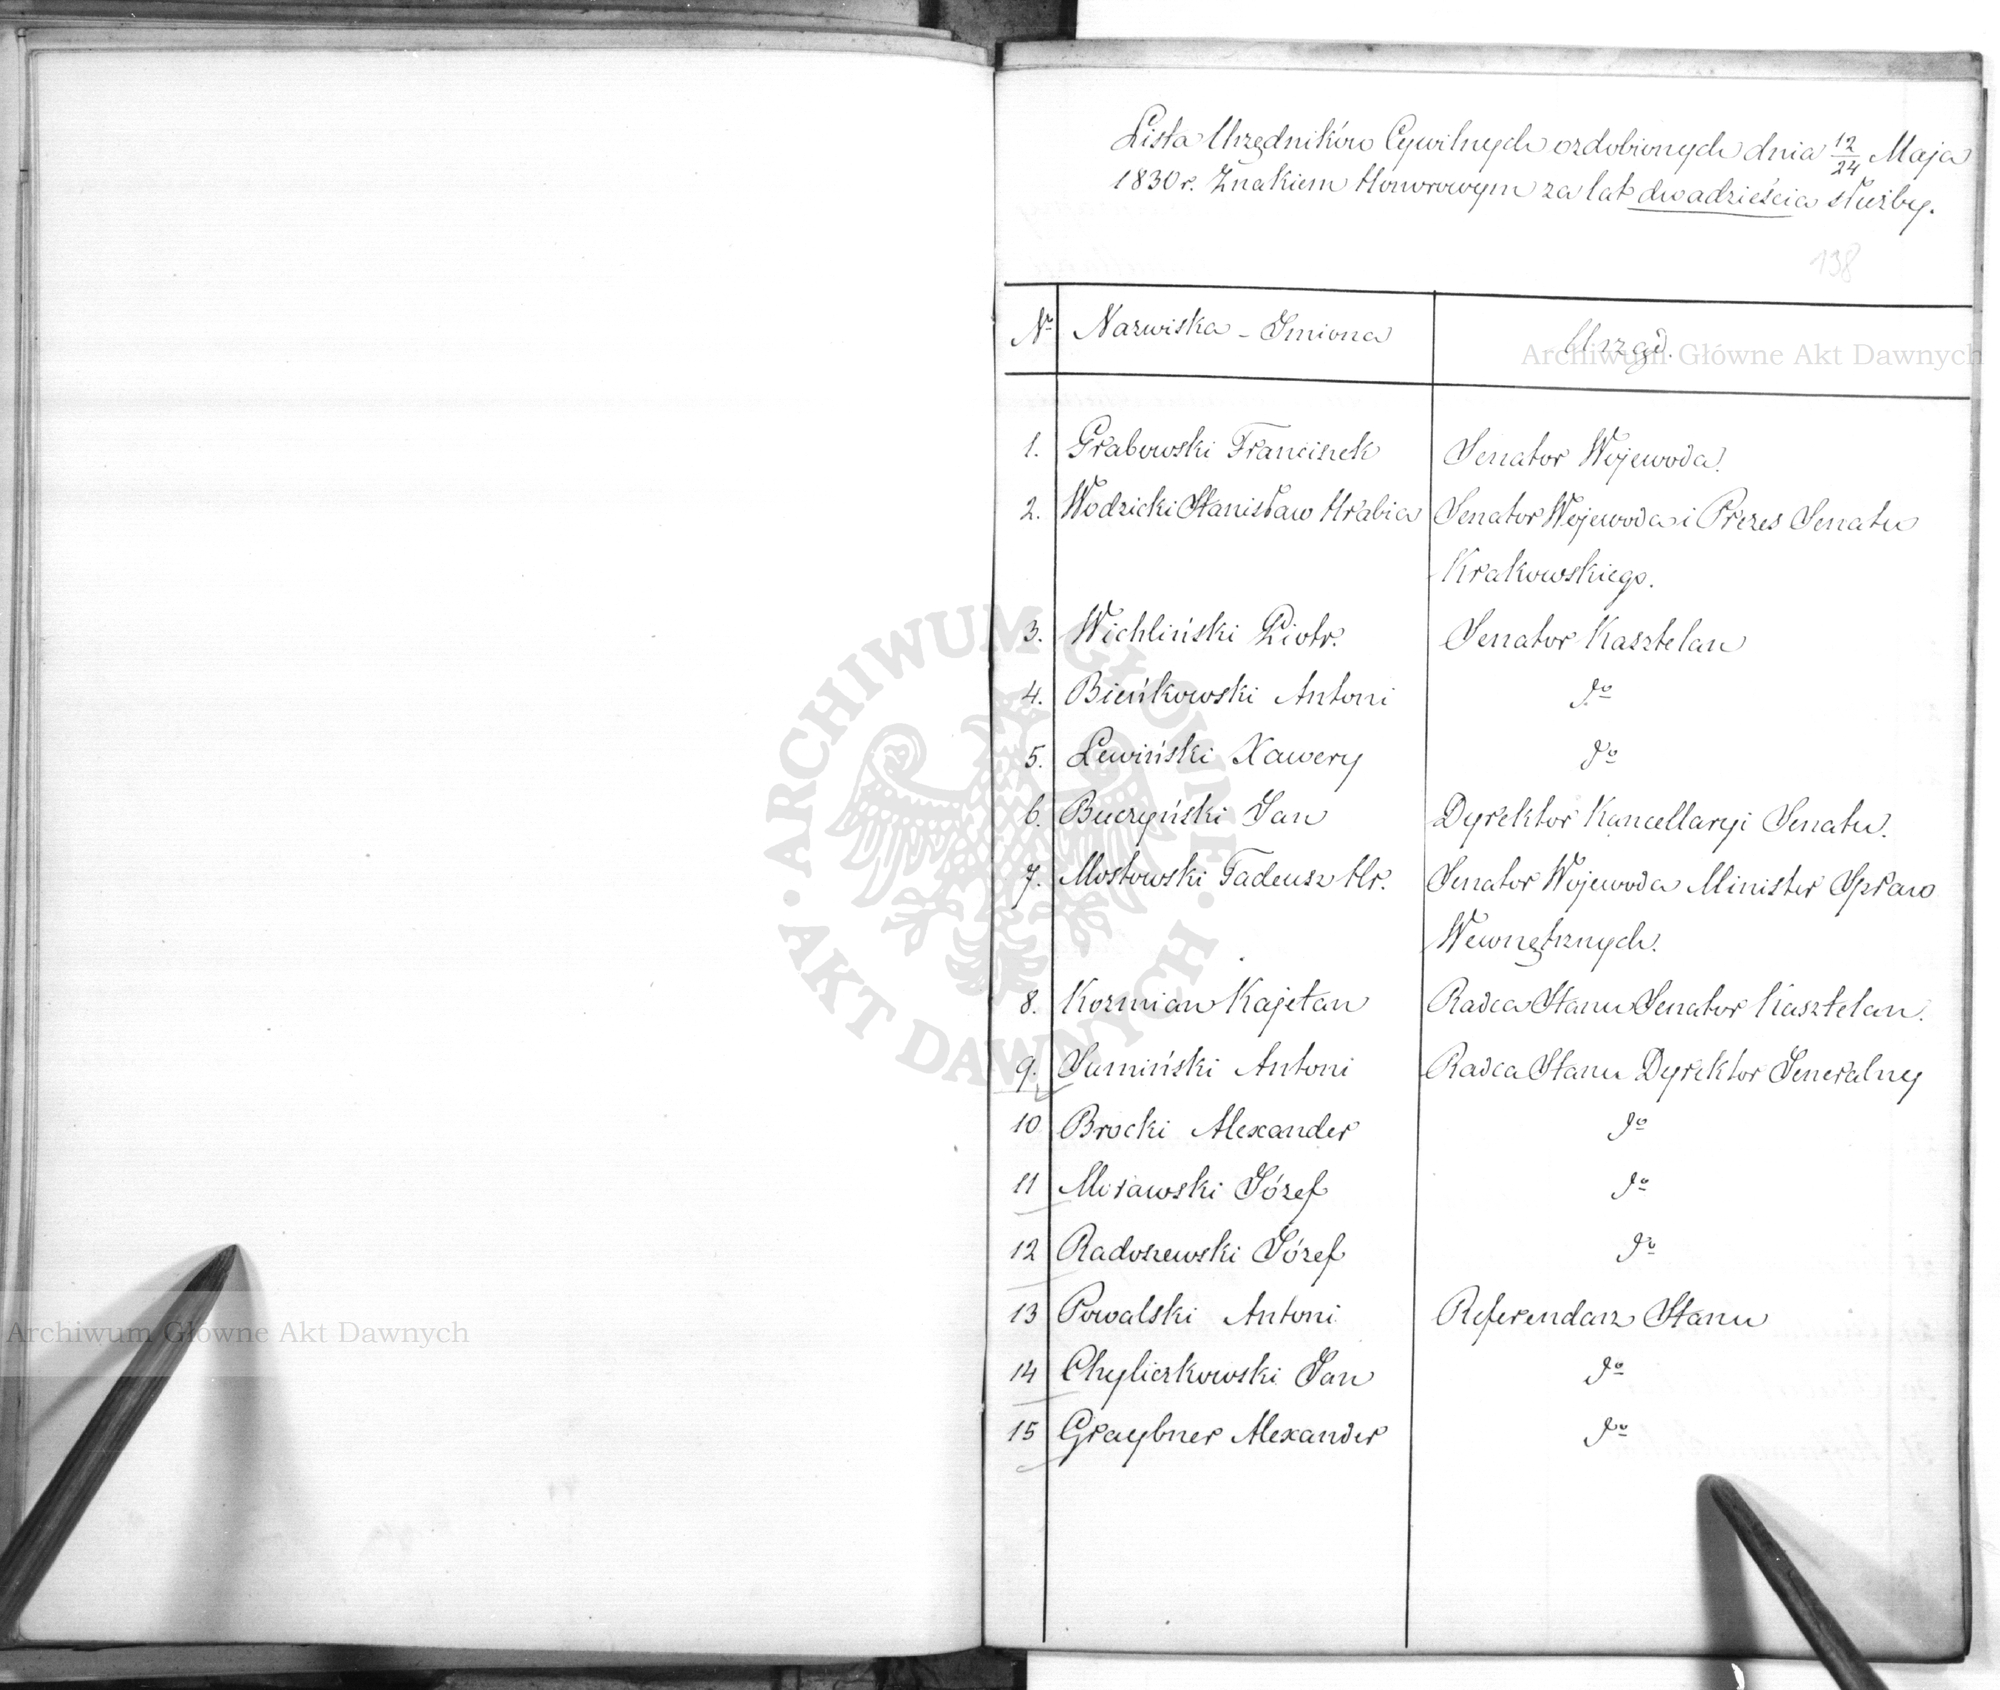 Lista Urzędników Cywilnych ozdobionych dnia 12/24 Maja
1830 r. Znakiem Honorowym za lat dwadzieścia służby.
138
Nr Nazwiska - Imiona Urząd.
1. Grabowski Franciszek Senator Wojewoda.
2. Wodzicki Stanisław Hrabia Senator Wojewoda i Prezes Senatu
Krakowskiego.
3. Wichliński Piotr. Senator Kasztelan
4. Bieńkowski Antoni do
5. Lewiński Xawery do
6. Buczyński Jan Dyrektor Kancellaryi Senatu.
7. Mostowski Tadeusz Hr. Senator Wojewoda Minister Spraw
Wewnętrznych.
8. Kozmian Kajetan Radca Stanu Senator Kasztelan.
9. Sumiński Antoni Radca Stanu Dyrektor Generalny
10 Brocki Alexander do
11 Morawski Józef do
12 Radoszewski Józef do
13 Powalski Antoni Referendarz Stanu
14 Chyliczkowski Jan do
15 Graybner Alexander do
Archiwum Główne Akt Dawnych
Archiwum Główne Akt Dawnych
ARCHIWUM GŁÓWNE
AKT DAWNYCH